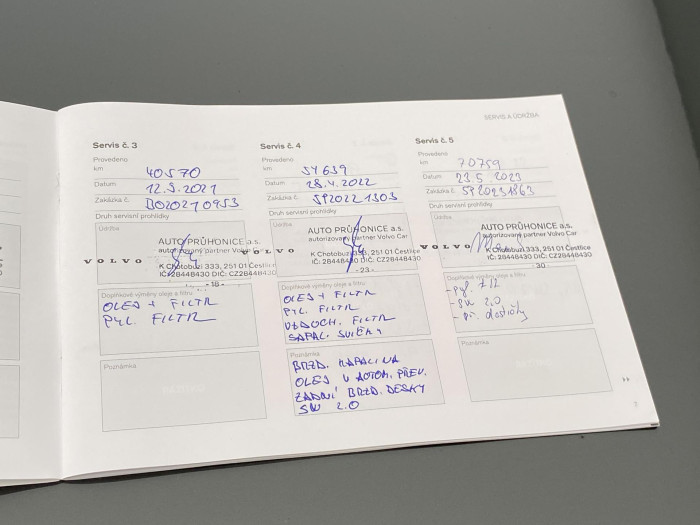 SERVIS A ÚDRŽBA
Servis č. 3
Provedeno
km 40570
Datum 12.5.2021
Zakázka č.
Druh servisní prohlídky
Údržba
AUTO PRŮHONICE a.s.
autorizovaný partner Volvo Car
VOLVO
K Chotobuzi 333, 251 01 Čestlice
IČ: 28448430 DIČ: CZ28448430
- 18 -
Doplňkové výměny oleje a filtru
OLEJ + FILTR
PYL. FILTR
Poznámka
Servis č. 4
Provedeno
km 54639
Datum 28.4.2022
Zakázka č. SP20221303
Druh servisní prohlídky
Údržba
AUTO PRŮHONICE a.s.
autorizovaný partner Volvo Car
VOLVO
K Chotobuzi 333, 251 01 Čestlice
IČ: 28448430 DIČ: CZ28448430
- 23 -
Doplňkové výměny oleje a filtru
OLEJ + FILTR
PYL. FILTR
VZDUCH. FILTR
ZAPAL. SVÍČKY
Poznámka
BRZD. KAPALINA
OLEJ V AUTOM. PŘEV.
ZADNÍ BRZD. DESKY
SW 2.0
Servis č. 5
Provedeno
km 70759
Datum 23.5 2023
Zakázka č. SP20231863
Druh servisní prohlídky
Údržba
AUTO PRŮHONICE a.s.
autorizovaný partner Volvo Car
VOLVO
K Chotobuzi 333, 251 01 Čestlice
IČ: 28448430 DIČ: CZ28448430
30
Doplňkové výměny oleje a filtru
- pyl.
- SW 2.0
- př. destičky
Poznámka